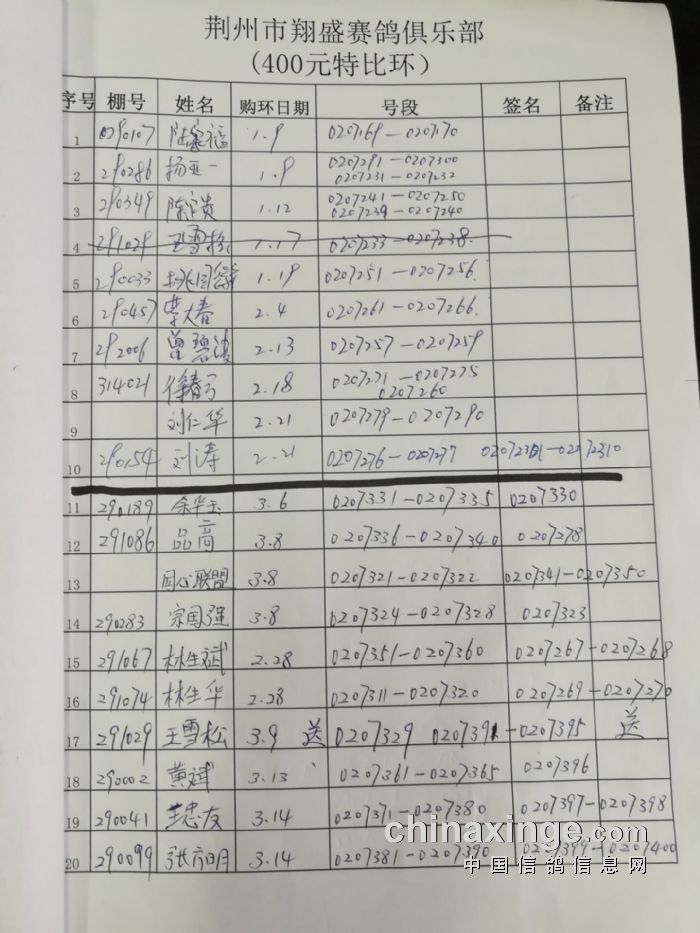 荆州市翔盛赛鸽俱乐部
(400元特比环)
序号 棚号 姓名 购环日期 号段 签名 备注
1 0290107 陆家福 1.9 0207169-0207170
2 290286 扬亚一 1.9 0207291-0207300
0207231-0207232
3 290349 陈宗贵 1.12 0207241-0207250
0207239-0207240
4 291029 王雪松 1.17 0207233-0207238
5 290033 1.19 0207251-0207256
6 290457 李大春 2.4 0207261-0207266
7 292006 曾碧波 2.13 0207257-0207259
8 314021 2.18 0207271-0207275
0207260
9 刘仁华 2.21 0207279-0207290
10 290154 刘涛 2.21 0207276-0207277 0207301-0207310
11 290189 余华玉 3.6 0207331-0207335 0207330
12 291086 品高 3.8 0207336-0207340 0207278
13 同心联盟 3.8 0207321-0207322 0207341-0207350
14 290283 宗国强 3.8 0207324-0207328 0207323
15 291067 林生斌 2.28 0207351-0207360 0207267-0207268
16 291074 林生华 2.28 0207311-0207320 0207269-0207270
17 291029 王雪松 3.9 送 0207329 0207391-0207395 送
18 290002 黄斌 3.13 0207361-0207365 0207396
19 290041 忠友 3.14 0207371-0207380 0207397-0207398
20 290099 张明 3.14 0207381-0207390 0207399-0207400
chinaxinge.com
中国信鸽信息网